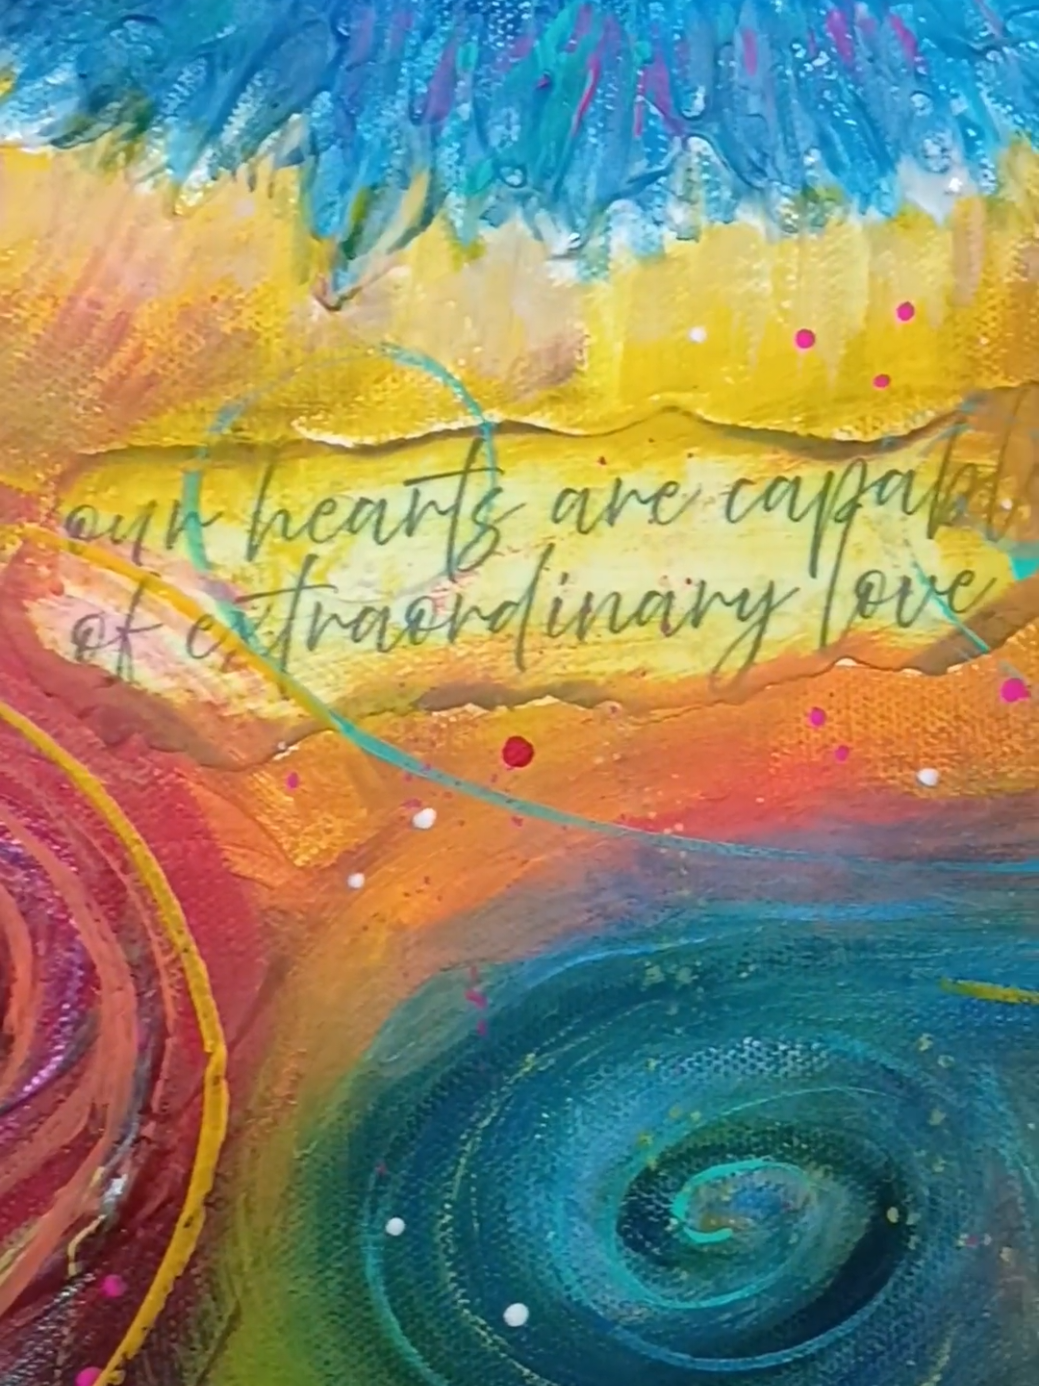 our hearts are capabl
of extraordinary love